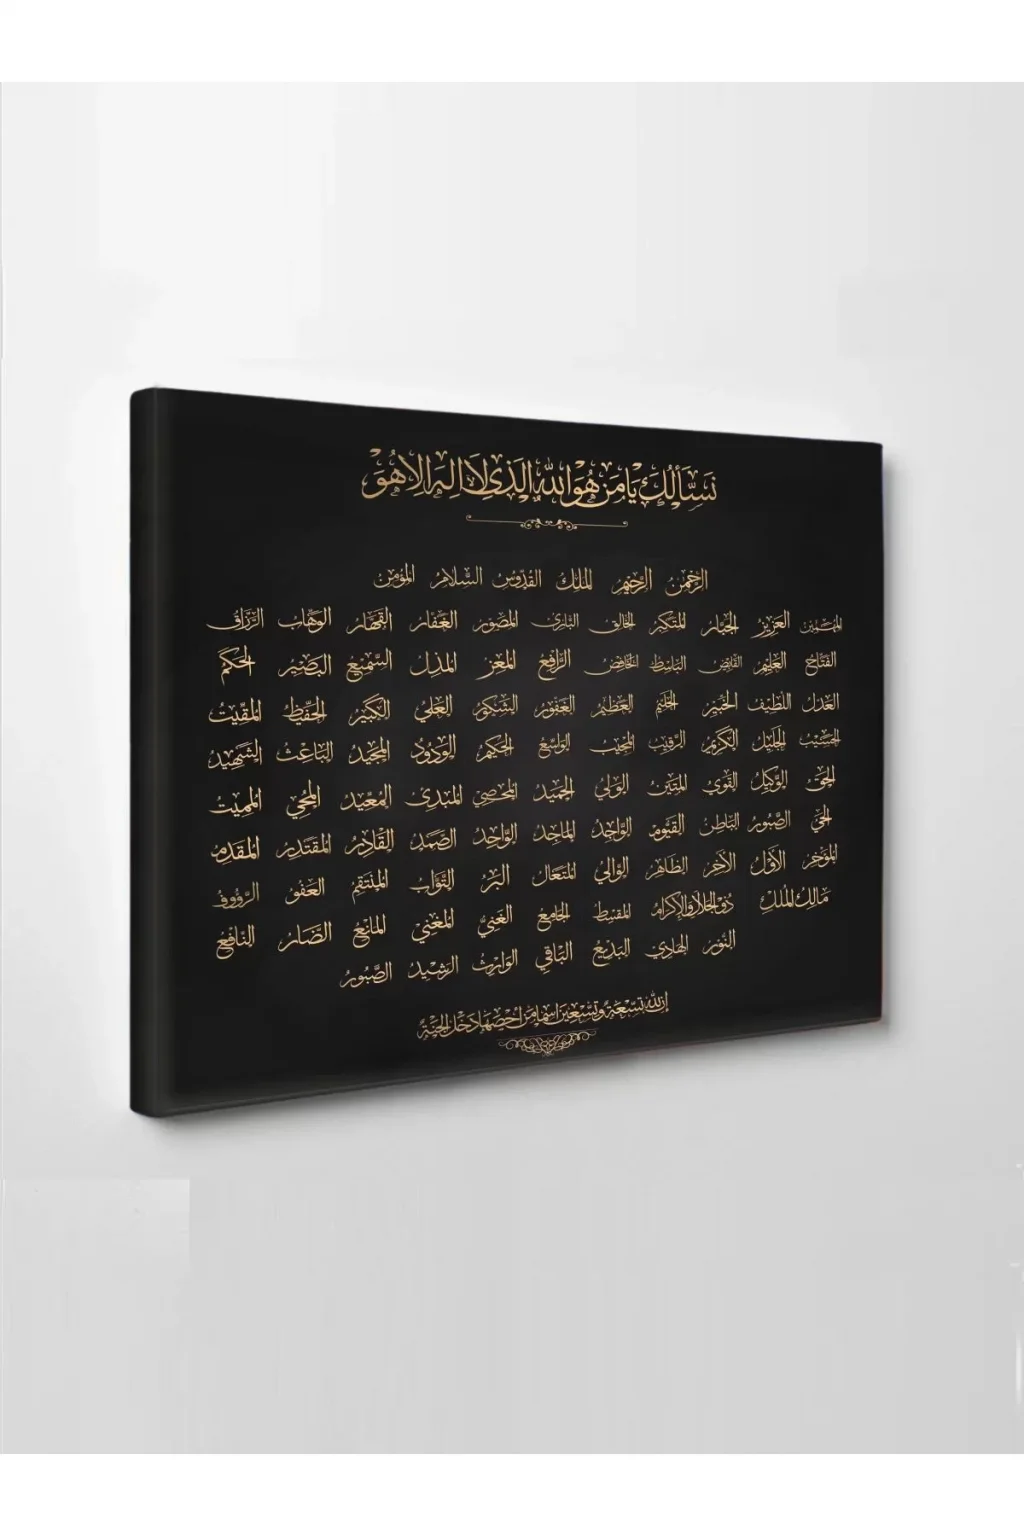 نَسْأَلُكَ يَا مَن هُوَ اللّٰه الَّذِي لَا اِلٰهَ اِلَّا هُوَ
الرحمن الرحيم الملك القدوس السلام المؤمن
المهيمن العزيز الجبار المتكبر الخالق البارئ المصور الغفار القهار الوهاب الرزاق
الفتاح العليم القابض الباسط الخافض الرافع المعز المذل السميع البصير الحكم
العدل اللطيف الخبير الحليم العظيم الغفور الشكور العلي الكبير الحفيظ المقيت
الحسيب الجليل الكريم الرقيب المجيب الواسع الحكيم الودود المجيد الباعث الشهيد
الوكيل القوي المتين الولي الحميد المحصي المبدئ المعيد المحيي المميت
الحي الصبور الباطن القيوم الواجد الماجد الواحد الصمد القادر المقتدر المقدم
المؤخر الأول الآخر الظاهر الوالي المتعال البر التواب المنتقم العفو الرؤوف
مالك الملك ذو الجلال والإكرام المقسط الجامع الغني المغني المانع الضار النافع
النور الهادي البديع الباقي الوارث الرشيد الصبور
إن لله تسعة وتسعين اسما من احصها دخل الجنة